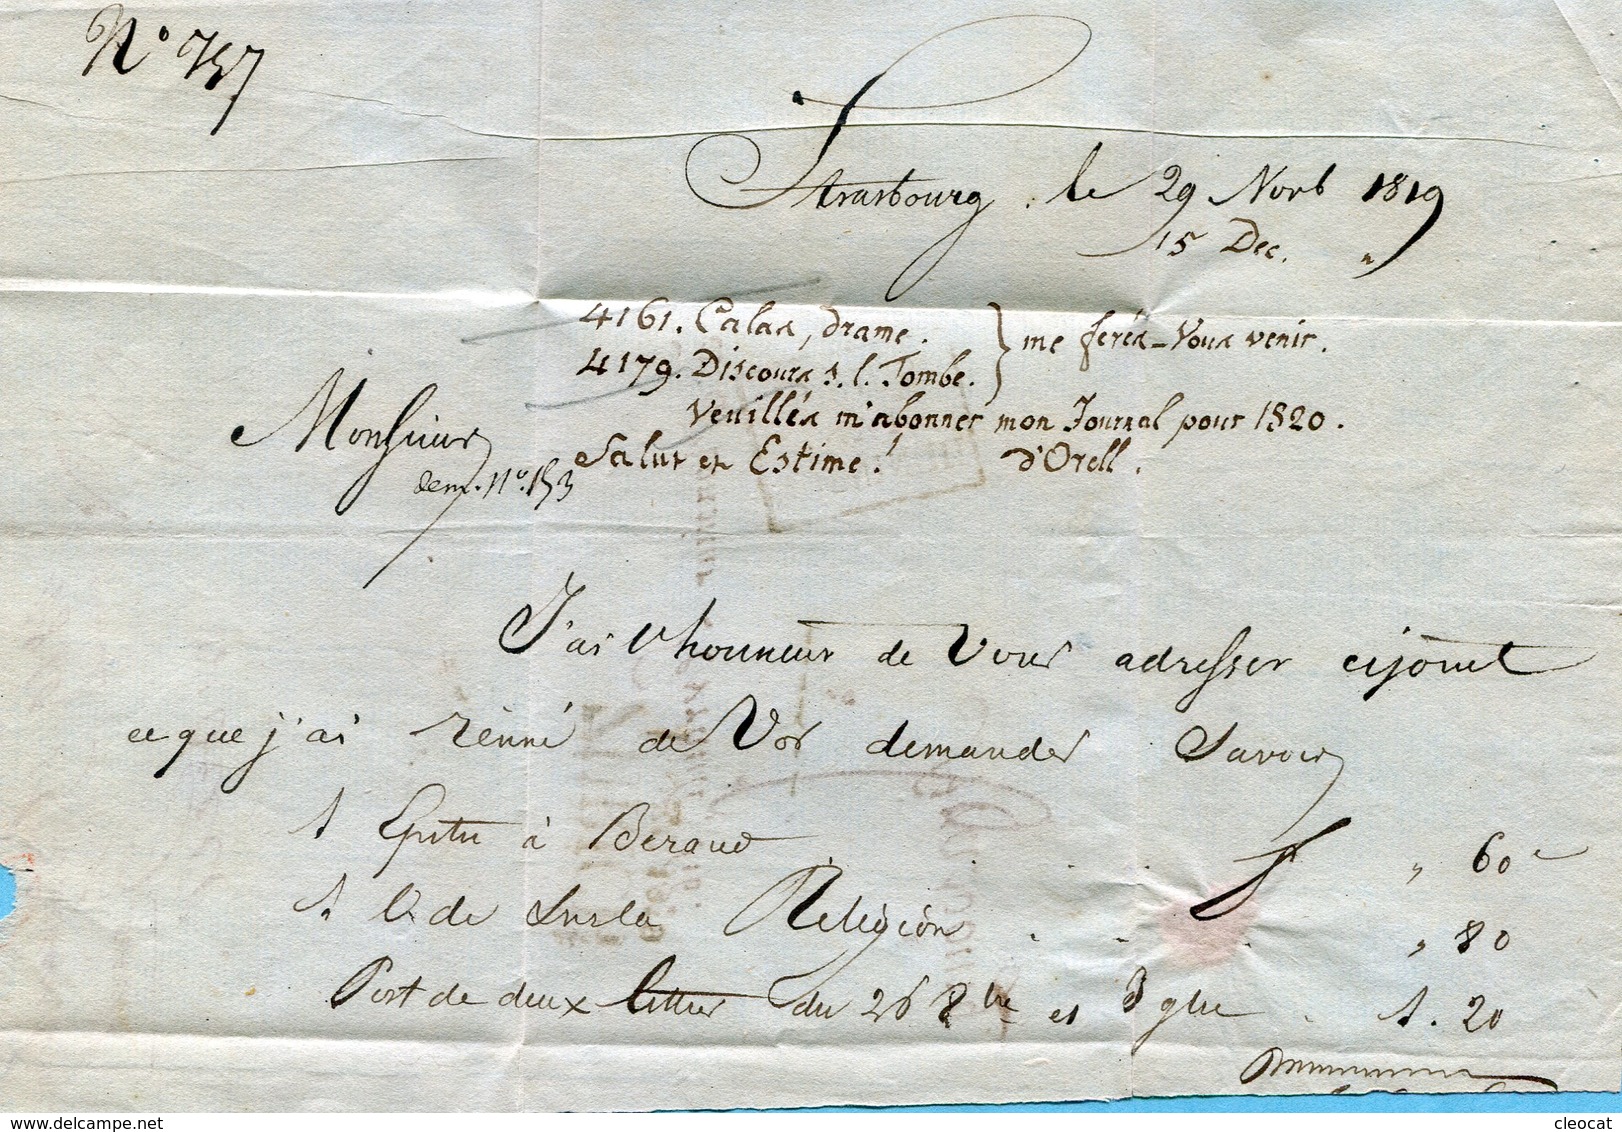 N° 757
Strasbourg . le 29 Novb 1819
15 Dec. "
4161. Calas, drame. } me ferés-Vous venir.
4179. Discours s. l. Tombe.
Veuillés m'abonner mon Journal pour 1820.
Salut et Estime! d'Orell.
Monsieur
dem. N°. 153
J'ai l'honneur de Vous adresser cijoint
ce que j'ai de Vos demandes Savoir
1 Epitre à Beraud . . . f „ 60 c
1 de Sur la Religion . . . „ 80
Port de deux lettres du 26 8bre et 9bre . 1. 20
cleocat